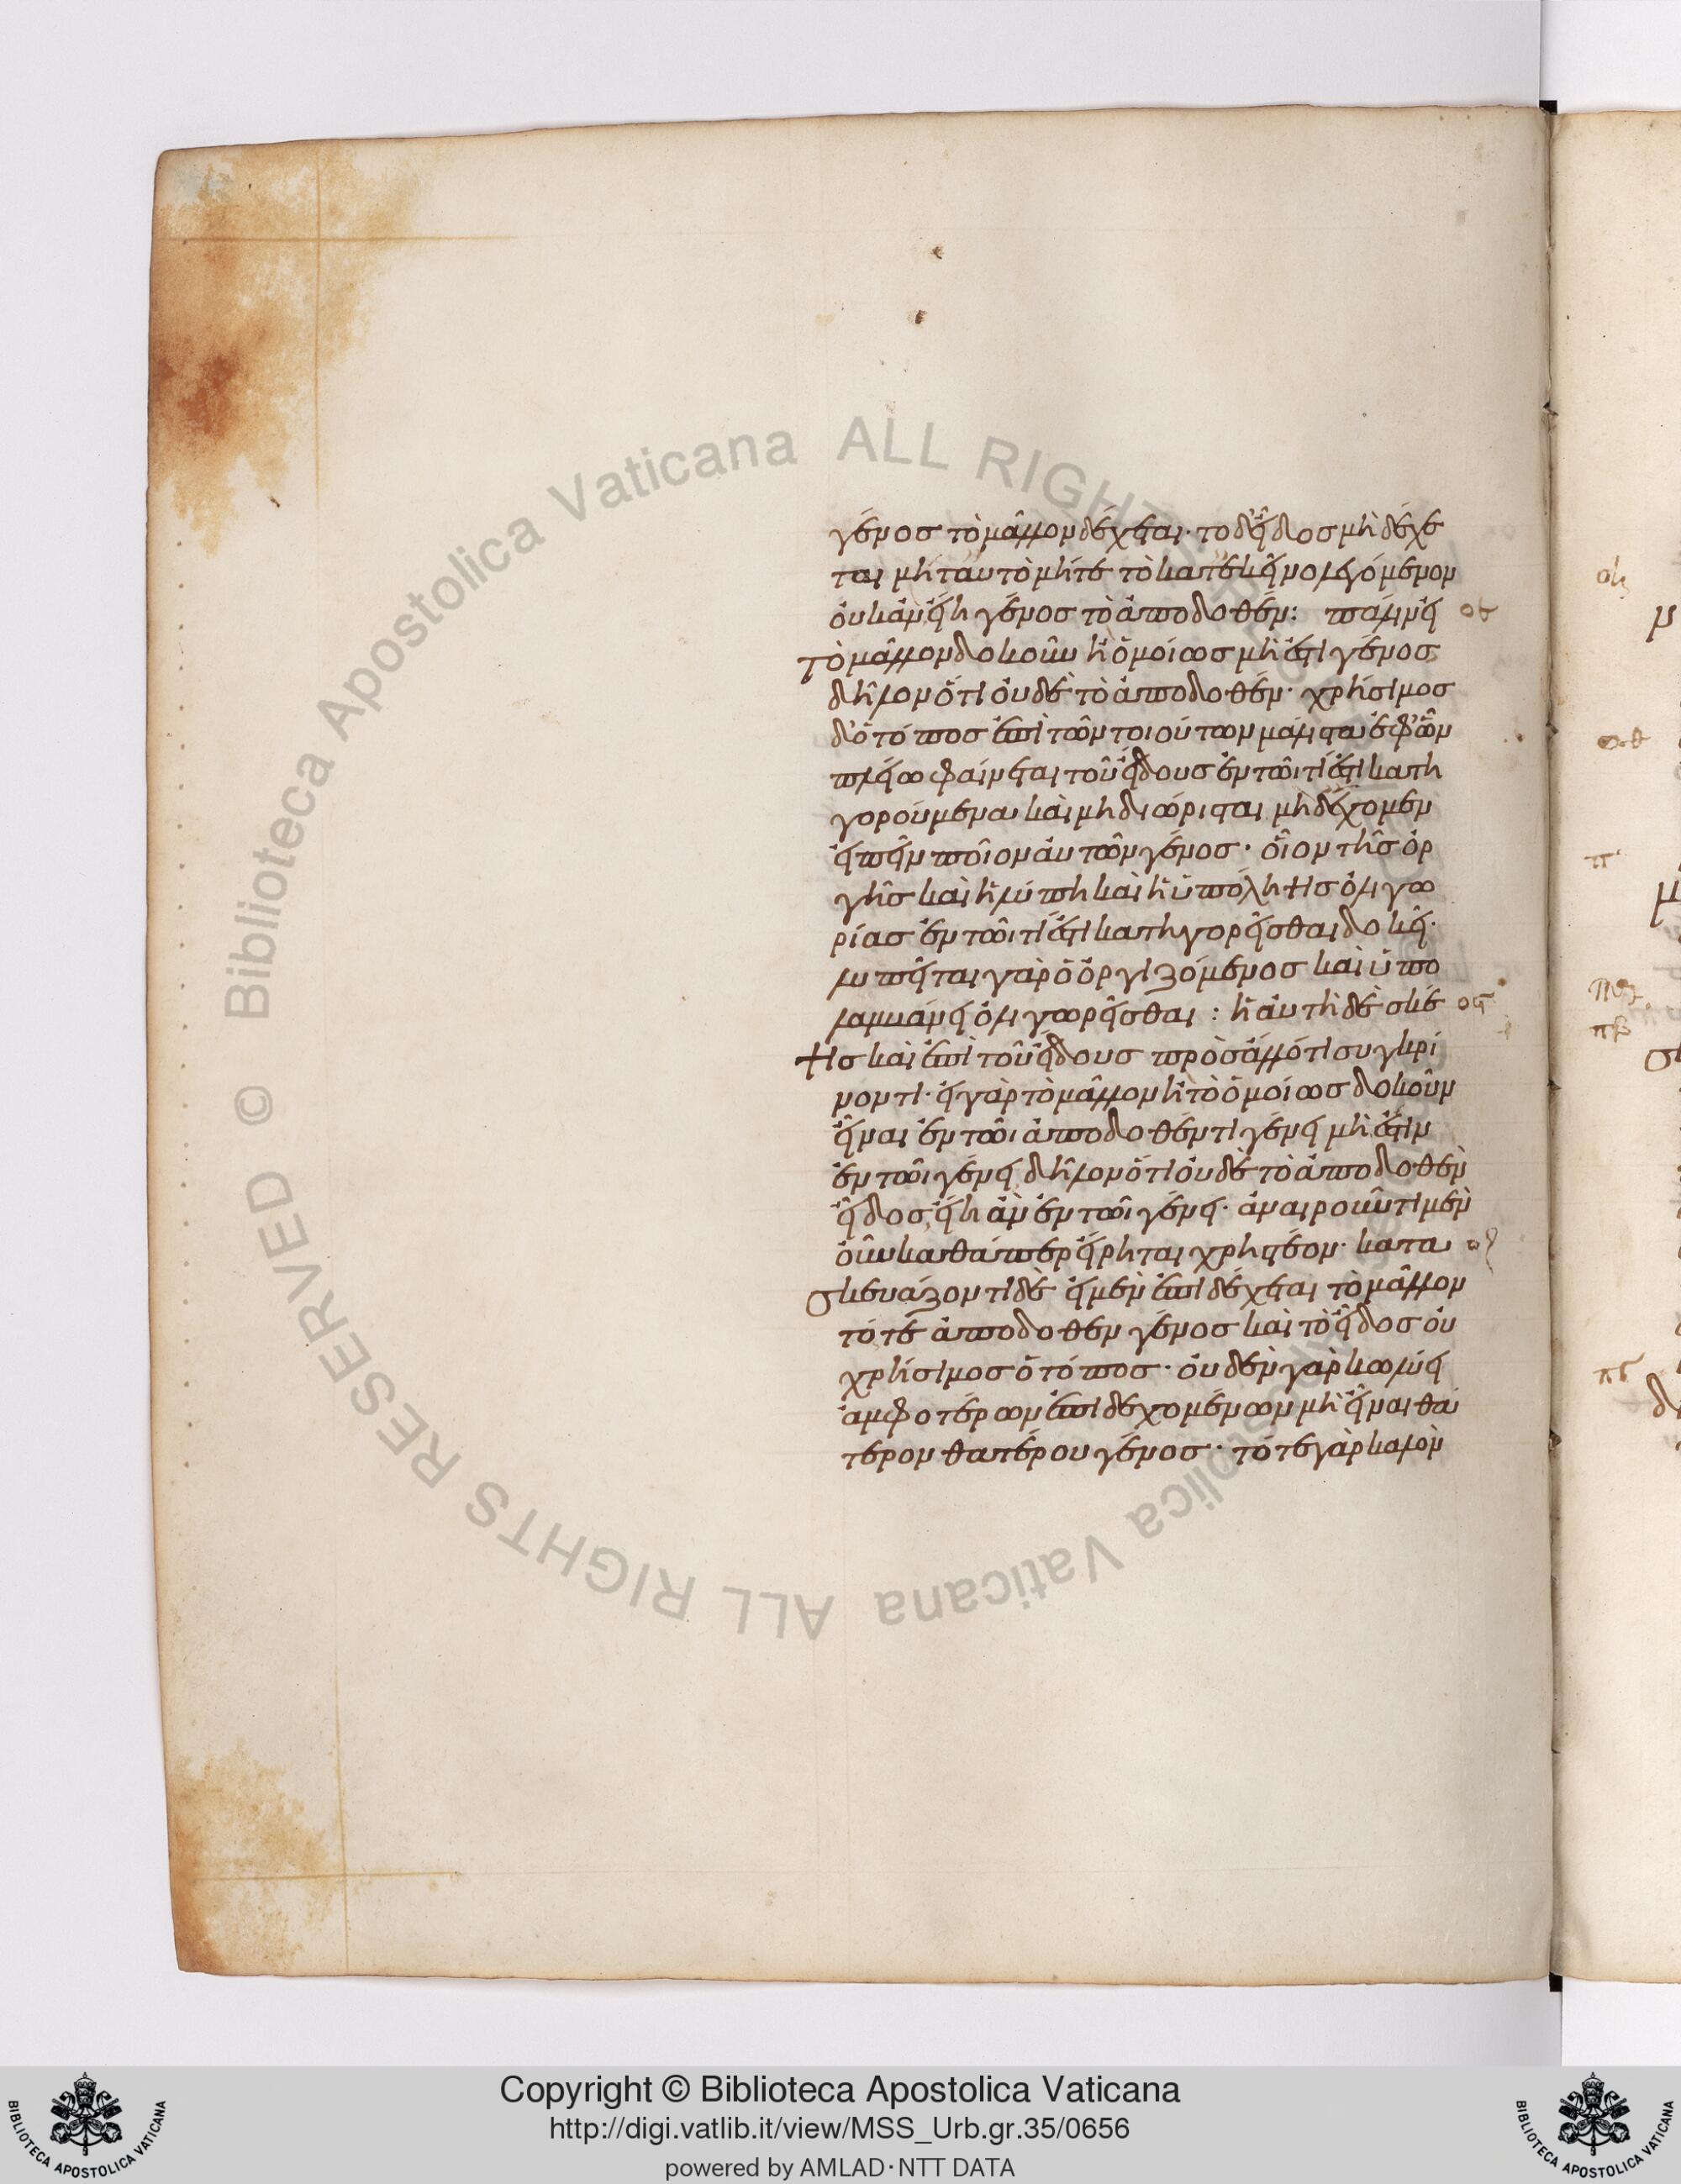 γένος τὸ μᾶλλον δέχεται· τὸ δ' εἶδος μὴ δέχε
ται μήτ' αὐτὸ μήτε τὸ κατ' ἐκεῖνο λεγόμενον
οὐκ ἂν εἴη γένος τὸ ἀποδοθέν: πάλιν εἰ οε
τὸ μᾶλλον δοκοῦν ἢ ὁμοίως μή ἐστι γένος
δῆλον ὅτι οὐδὲ τὸ ἀποδοθέν· χρήσιμος
δ' ὁ τόπος ἐπὶ τῶν τοιούτων μάλιστα ἐφ' ὧν
πλείω φαίνεται τοῦ εἴδους ἐν τῶι τί ἐστι κατη
γορούμενα καὶ μὴ διώρισται μὴ δ' ἔχομεν
εἰπεῖν ποῖον αὐτῶν γένος· οἷον τῆς ὀρ
γῆς καὶ ἡ λύπη καὶ ἡ ὑπόληψις ὀλιγω
ρίας ἐν τῶι τί ἐστι κατηγορεῖσθαι δοκεῖ·
λυπεῖται γὰρ ὁ ὀργιζόμενος καὶ ὑπο
λαμβάνει ὀλιγωρεῖσθαι: ἡ αὐτὴ δὲ σκέ ος
ψις καὶ ἐπὶ τοῦ εἴδους πρὸς ἄλλό τι συγκρί
νοντι· εἰ γὰρ τὸ μᾶλλον ἢ τὸ ὁμοίως δοκοῦν
εἶναι ἐν τῶι ἀποδοθέντι γένει μή ἐστιν
ἐν τῶι γένει δῆλον ὅτι οὐδὲ τὸ ἀποδοθὲν
εἶδος εἴη ἂν ἐν τῶι γένει· ἀναιροῦντι μὲν
οὖν καθάπερ εἴρηται χρηστέον· κατα οζ
σκευάζοντι δὲ εἰ μὲν ἐπιδέχεται τὸ μᾶλλον
τό τε ἀποδοθὲν γένος καὶ τὸ εἶδος οὐ
χρήσιμος ὁ τόπος· οὐδὲν γὰρ κωλύει
ἀμφοτέρων ἐπιδεχομένων μὴ εἶναι θά
τερον θατέρου γένος· τό τε γὰρ καλὸν
οη
οθ
π
πα
πβ
πγ
Copyright © Biblioteca Apostolica Vaticana
http://digi.vatlib.it/view/MSS_Urb.gr.35/0656
powered by AMLAD·NTT DATA
BIBLIOTECA APOSTOLICA VATICANA
BIBLIOTECA APOSTOLICA VATICANA
© Biblioteca Apostolica Vaticana ALL RIGHTS RESERVED